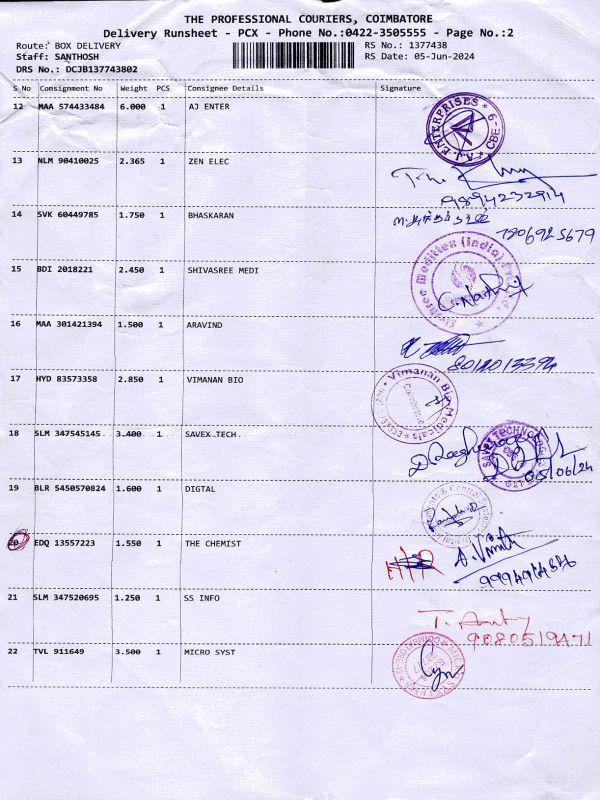 THE PROFESSIONAL COURIERS, COIMBATORE
Delivery Runsheet - PCX - Phone No.:0422-3505555 - Page No.:2
Route: BOX DELIVERY RS No.: 1377438
Staff: SANTHOSH RS Date: 05-Jun-2024
DRS No.: DCJB137743802
S No Consignment No Weight PCS Consignee Details Signature
12 MAA 574433484 6.000 1 AJ ENTER
A.J. ENTERPRISES * CBE-
13 NLM 90410025 2.365 1 ZEN ELEC
9894232914
14 SVK 60449785 1.750 1 BHASKARAN
7806925679
15 BDI 2018221 2.450 1 SHIVASREE MEDI
Meditec (India)
16 MAA 301421394 1.500 1 ARAVIND
8012013394
17 HYD 83573358 2.850 1 VIMANAN BIO
Vimanan Bio Medicals
18 SLM 347545145 3.400 1 SAVEX TECH.
SAVEX TECHNOLOGIES
05/06/24
19 BLR 5450570824 1.600 1 DIGTAL
20 EDQ 13557223 1.550 1 THE CHEMIST
21 SLM 347520695 1.250 1 SS INFO
22 TVL 911649 3.500 1 MICRO SYST